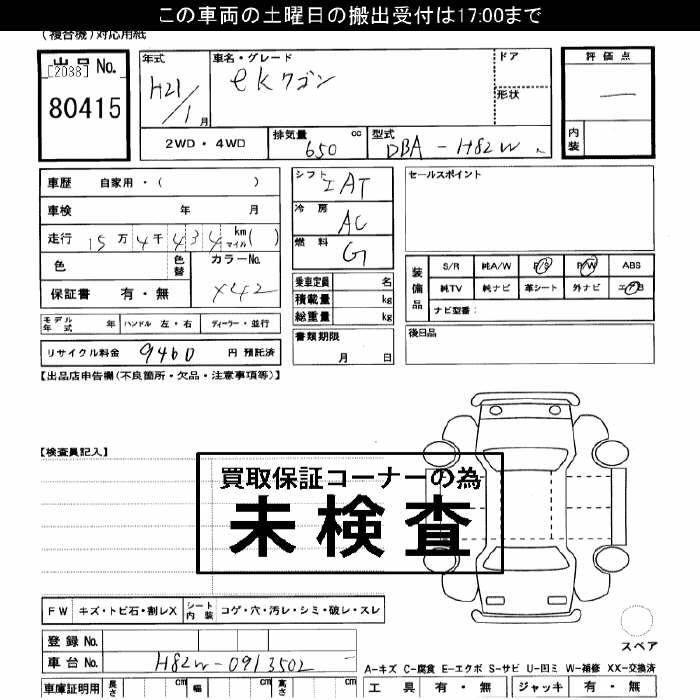 この車両の土曜日の搬出受付は17:00まで
(複合機)対応用紙
出品No.
[2038]
80415
年式
H21/1月
車名・グレード
eKワゴン
ドア
形状
評価点
一
内装
2WD・4WD
排気量 650 cc
型式 DBA-H82W
車歴 自家用・( )
車検 年 月
走行 15万4千434 km マイル( )
色 色替
カラーNo.
X42
保証書 有・無
モデル年式 年 ハンドル 左・右 ディーラー・並行
リサイクル料金 9460 円 預託済
シフト IAT
冷房 AC
燃料 G
乗車定員 名
積載量 kg
総重量 kg
書類期限
月 日
セールスポイント
装備品
S/R 純A/W P/S P/W ABS
純TV 純ナビ 革シート 外ナビ エアB
ナビ型番:
後日品
【出品店申告欄(不良箇所・欠品・注意事項等)】
【検査員記入】
買取保証コーナーの為
未検査
FW キズ・トビ石・割レX シート内装 コゲ・穴・汚レ・シミ・破レ・スレ
スペア
登録No.
車台No. H82W-0913502
A-キズ C-腐食 E-エクボ S-サビ U-凹ミ W-補修 XX-交換済
車庫証明用 長さ cm 幅 cm 高さ cm
工具 有・無 ジャッキ 有・無